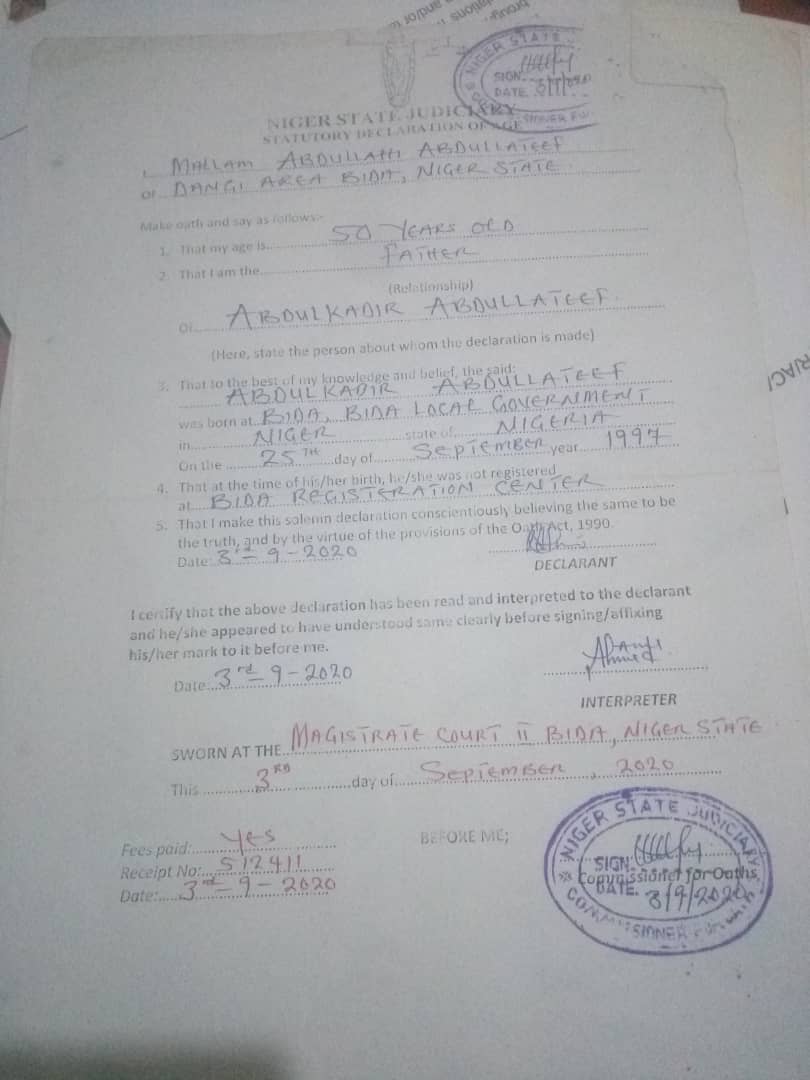 and/or
NIGER STATE
SIGN
DATE
NIGER STATE JUDICIARY
STATUTORY DECLARATION OF AGE
I, MALLAM ABDULLAHI ABDULLATEEF
of DANGI AREA BIDA, NIGER STATE
Make oath and say as follows:-
1. That my age is 50 YEARS OLD
2. That I am the FATHER
(Relationship)
Of ABDULKADIR ABDULLATEEF
(Here, state the person about whom the declaration is made)
3. That to the best of my knowledge and belief, the said:
ABDULKADIR ABDULLATEEF
was born at BIDA, BIDA LOCAL GOVERNMENT
in NIGER state of NIGERIA
On the 25TH day of September year 1997
4. That at the time of his/her birth, he/she was not registered
at BIDA REGISTERATION CENTER
5. That I make this solemn declaration conscientiously believing the same to be
the truth, and by the virtue of the provisions of the Oath Act, 1990.
Date: 3rd-9-2020
DECLARANT
I certify that the above declaration has been read and interpreted to the declarant
and he/she appeared to have understood same clearly before signing/affixing
his/her mark to it before me.
Date: 3rd-9-2020
Ahmed
INTERPRETER
SWORN AT THE MAGISTRATE COURT II BIDA, NIGER STATE
This 3RD day of September, 2020
Fees paid: Yes
BEFORE ME;
Receipt No: 512411
Date: 3rd-9-2020
NIGER STATE JUDICIARY
SIGN:
Commissioner for Oaths
DATE. 3/9/2020
COMMISSIONER